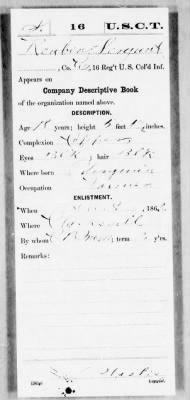 S 16 U.S.C.T.
Reuben Sergeant
, Co. C, 16 Reg't U. S. Col'd Inf.
Appears on
Company Descriptive Book
of the organization named above.
DESCRIPTION.
Age 18 years; height 5 feet inches.
Complexion Copper
Eyes Blk, hair Blk
Where born Virginia
Occupation Farmer
ENLISTMENT.
When , 186
Where Clarksvill
By whom ; term 3 y'rs.
Remarks:
Copyist.